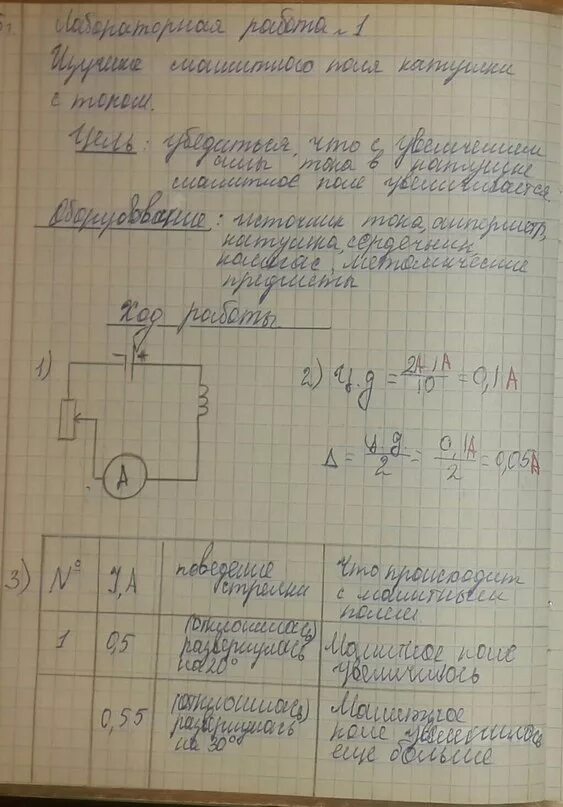 Лабораторная работа №1
Изучение магнитного поля катушки
с током.
Цель: убедиться, что с увеличением
силы тока в катушке
магнитное поле увеличивается.
Оборудование: источник тока, амперметр,
катушка, сердечник,
компас, металические
предметы
Ход работы
1)
A
2) Ц.д = 2А-1А/10 = 0,1А
Δ = ц.д./2 = 0,1А/2 = 0,05А
3)
№ I,А поведение стрелки Что происходит с магнитным полем
1 0,5 (отклонилась) развернулась на 20° Магнитное поле увеличилось
0,55 (отклонилась) развернулась на 30° Магнитное поле увеличилось еще больше